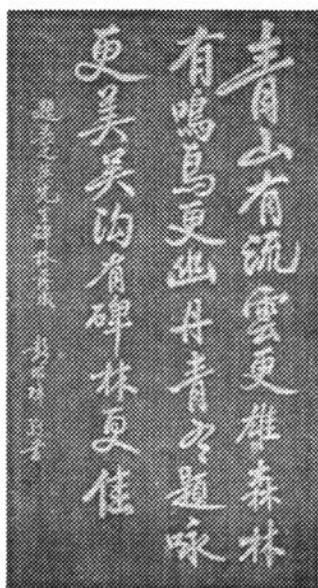 青山有流雲更雄森林
有鳴鳥更幽丹青有題咏
更美吴沟有碑林更佳